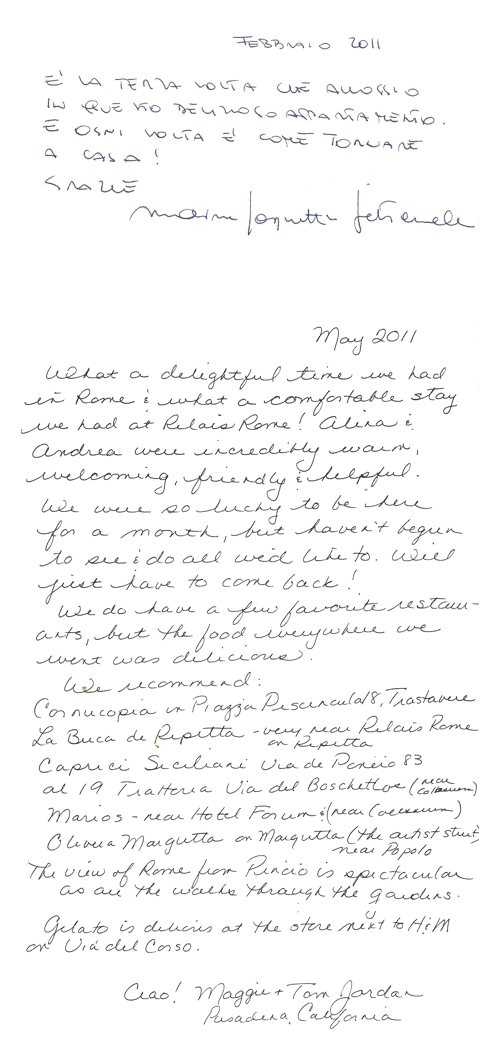 FEBBRAIO 2011
E' LA TERZA VOLTA CHE ALLOGGIO
IN QUESTO DELIZIOSO APPARTAMENTO.
E OGNI VOLTA E' COME TORNARE
A CASA!
GRAZIE
May 2011
What a delightful time we had
in Rome & what a comfortable stay
we had at Relais Rome! Alina &
Andrea were incredibly warm,
welcoming, friendly & helpful.
We were so lucky to be here
for a month, but haven't begun
to see & do all we'd like to. We'll
just have to come back!
We do have a few favorite restaur-
ants, but the food everywhere we
went was delicious.
We recommend:
Cornucopia in Piazza Piscinula 18, Trastavere
La Buca de Ripetta - very near Relais Rome
on Ripetta
Capricci Siciliani Via de Panico 83
al 19 Trattoria Via del Boschetto (near Colosseum)
Marios - near Hotel Forum & (near Colosseum)
Olivia Margutta on Margutta (the artist street,
near Popolo
The view of Rome from Pincio is spectacular
as are the walks through the gardens.
Gelato is delicious at the store next to H&M
on Via del Corso.
Ciao! Maggie + Tom Jordan
Pasadena, California